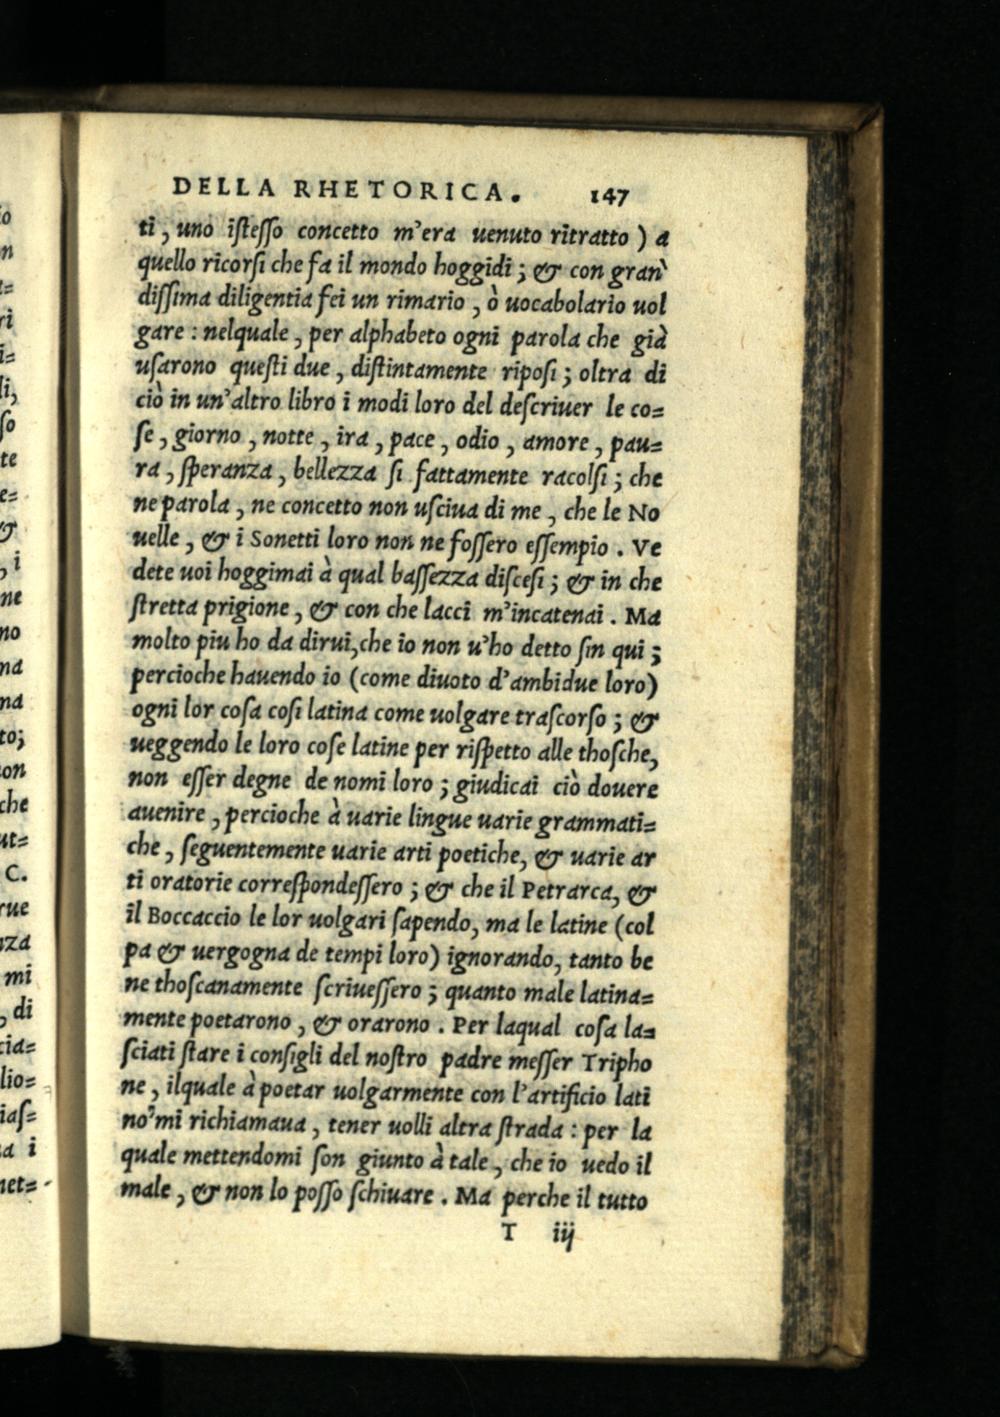 DELLA RHETORICA. 147
ti, uno istesso concetto m'era uenuto ritratto ) a
quello ricorsi che fa il mondo hoggidi ; & con gran
dissima diligentia fei un rimario , ò uocabolario uol
gare : nelquale , per alphabeto ogni parola che già
usarono questi due , distintamente riposi ; oltra di
ciò in un'altro libro i modi loro del descriuer le co=
se , giorno , notte , ira , pace , odio , amore , pau=
ra , speranza , bellezza si fattamente racolsi ; che
ne parola , ne concetto non usciua di me , che le No
uelle , & i Sonetti loro non ne fossero essempio . Ve
dete uoi hoggimai à qual bassezza discesi ; & in che
stretta prigione , & con che lacci m'incatenai . Ma
molto piu ho da dirui, che io non u'ho detto sin qui ;
percioche hauendo io (come diuoto d'ambidue loro)
ogni lor cosa cosi latina come uolgare trascorso ; &
ueggendo le loro cose latine per rispetto alle thosche,
non esser degne de nomi loro ; giudicai ciò douere
auenire , percioche à uarie lingue uarie grammati=
che , seguentemente uarie arti poetiche, & uarie ar
ti oratorie correspondessero ; & che il Petrarca, &
il Boccaccio le lor uolgari sapendo, ma le latine (col
pa & uergogna de tempi loro) ignorando, tanto be
ne thoscanamente scriuessero ; quanto male latina=
mente poetarono , & orarono . Per laqual cosa la=
sciati stare i consigli del nostro padre messer Tripho
ne , ilquale à poetar uolgarmente con l'artificio lati
no mi richiamaua , tener uolli altra strada : per la
quale mettendomi son giunto à tale , che io uedo il
male , & non lo posso schiuare . Ma perche il tutto
T iij